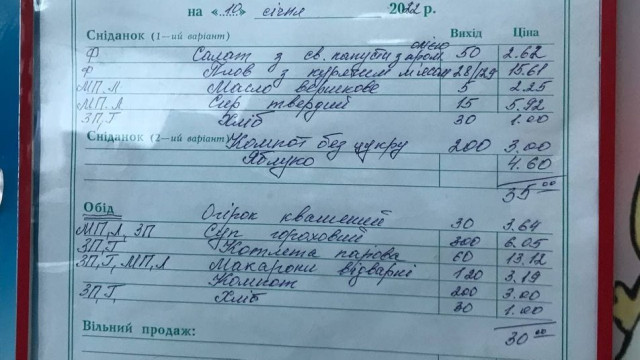 на « 10 » січня 2022 р.
Сніданок (1—ий варіант) Вихід Ціна
Ф Салат з св. капусти з олією 50 2.62
Ф Плов з курячим м'ясом 128/29 15.61
МП.Л Масло вершкове 5 2.25
МП.Л Сир твердий 15 5,92
ЗП,Г Хліб 30 1.00
Сніданок (2—ий варіант) Компот без цукру 200 3.00
Яблуко 4.60
35 00
Обід Огірок квашений 30 3.64
МП,Л, ЗП Суп гороховий 300 6.05
ЗП.Г Котлета парова 60 13.12
ЗП,Г, МП,Л Макарони відварні 120 3.19
Компот 200 3.00
ЗП,Г, Хліб 30 1.00
30 00
Вільний продаж: